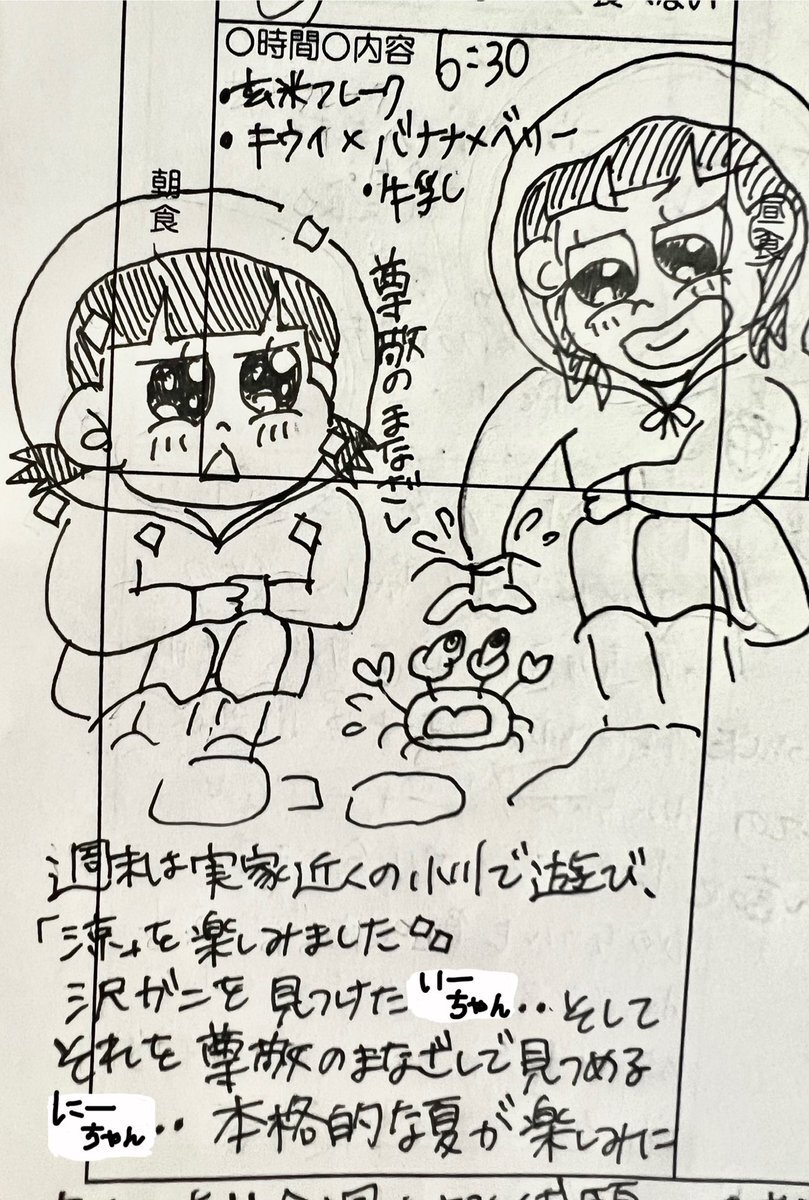 ○時間○内容 6:30
・玄米フレーク
・キウイ×バナナ×ベリー
・牛乳
朝食
昼食
尊敬のまなざし
週末は実家近くの小川で遊び、
「涼」を楽しみました
沢ガニを見つけたいーちゃん‥そして
それを尊敬のまなざしで見つめる
にーちゃん‥本格的な夏が楽しみに